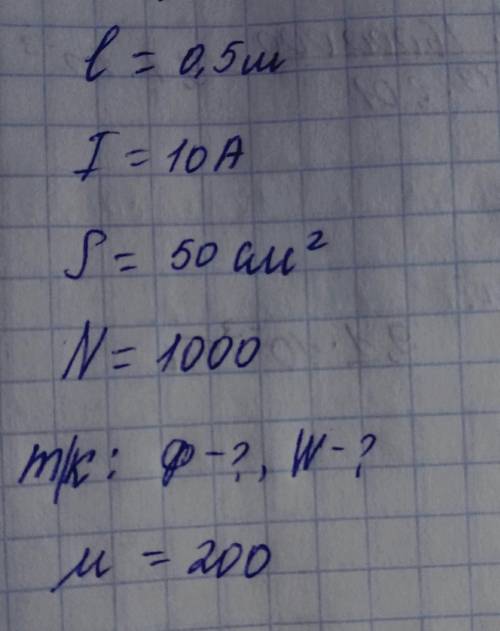 l = 0,5м
I = 10A
S = 50 см²
N = 1000
т/к: Ф-?, W-?
μ = 200